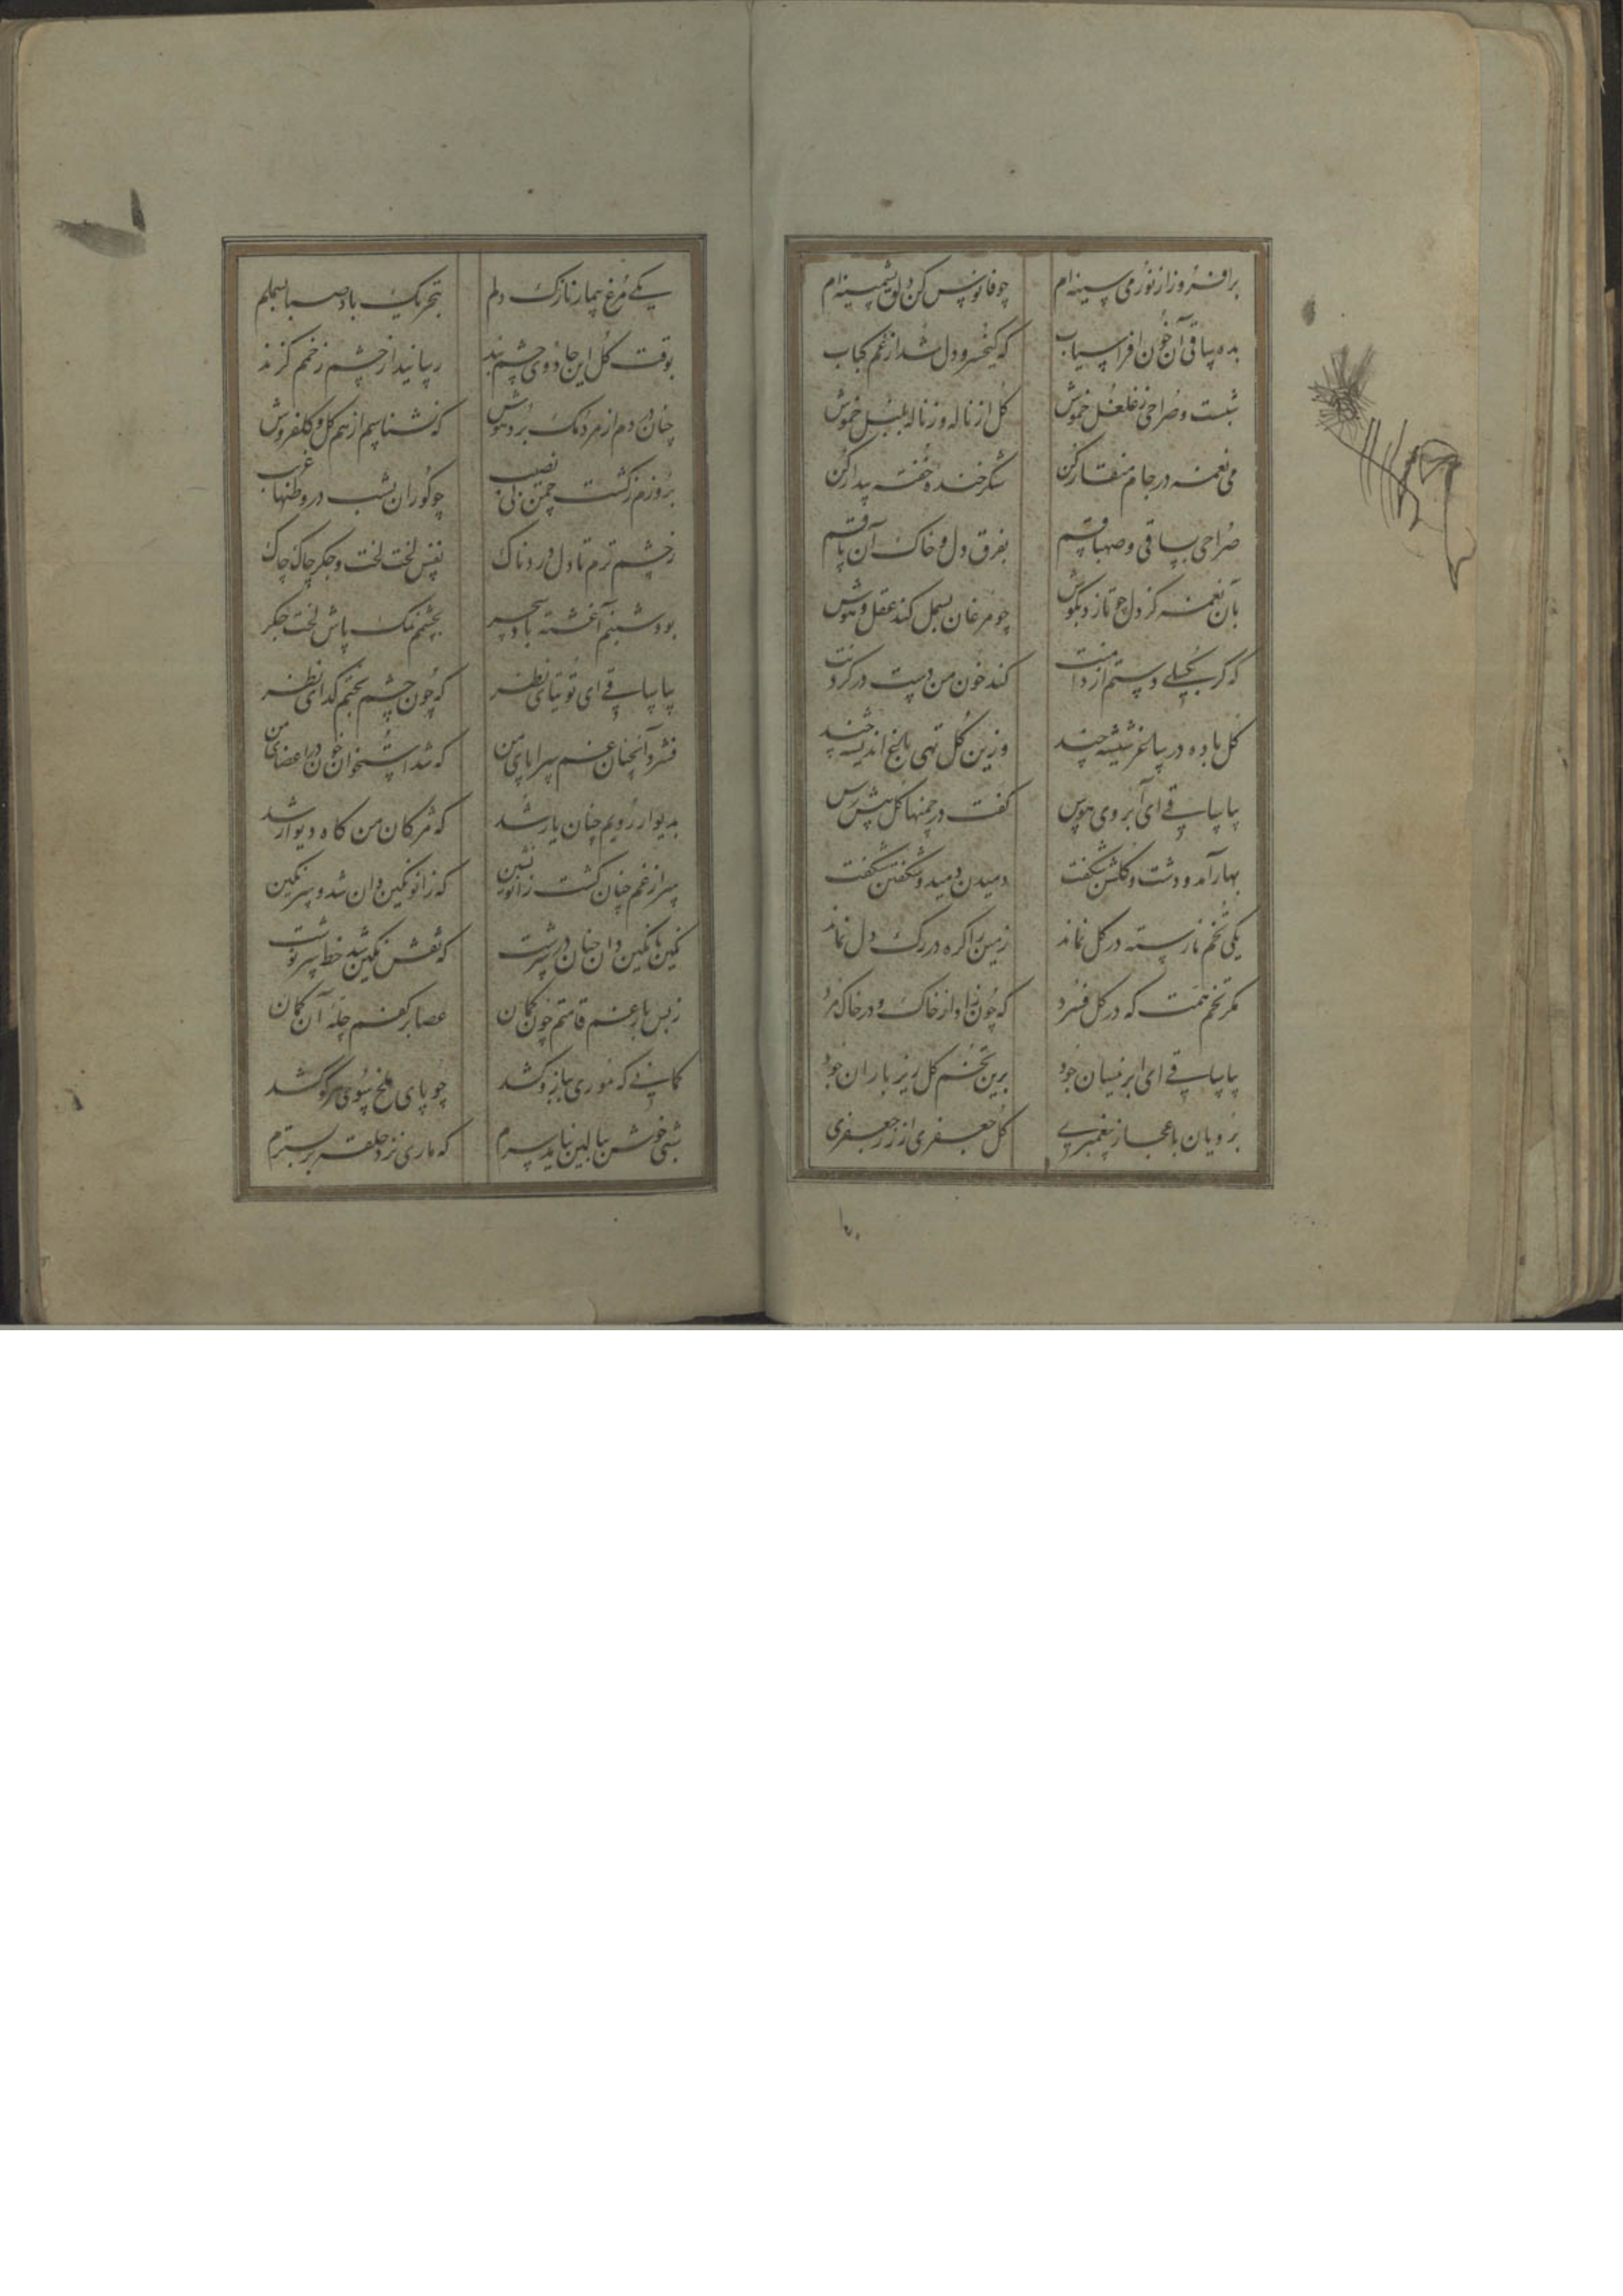 برافروز از نور می سینه‌ام چو فانوس کن دلق پشمینه‌ام
بده ساقی آن خون افراسیاب که کیخسرو دل شد از غم کباب
نشست و صراحی ز غلغل خموش گل از ناله و ز ناله بلبل خموش
می نغمه در جام منقار کن شکر خنده خفته بیدار کن
صراحی بساقی و صهبا قسم بفرق دل و خاک آن پا قسم
بآن نغمه کز دل چو تازد بگوش چو مرغان بسمل کند عقل و هوش
که گر بگسلی دستم از دامنت کند خون من دست در گردنت
گل باده در ساغر شیشه چند وزین گل تهی باغ اندیشه چند
بیا ساقی ای آبروی هوس گفت در چمنها گل پیشرس
بهار آمد و دشت و گلشن شکفت دمیدن دمید و شکفتن شکفت
یکی تخم نارسته در گل نماند زمین را گره در رگ دل نماند
مگر تخم همت که در گل فسرد که چون زاد از خاک و در خاک مرد
بیا ساقی ای ابر نیسان جود برین تخم گل ریز باران جود
برویان باعجاز پیغمبری گل جعفری از زر جعفری
یکی مرغ بیمار نازک دلم بتحریک باد صبا بسملم
بوقت گل این جادوی چشم بند رسانید از چشم زخمم گزند
چنان دم از مردمک برد هوش که نشناسم از هم گل و گلفروش
بروزم ز گشت چمن بی نصیب چو کوران بشب در وطنها غریب
ز چشم ترم تا دل دردناک نفس لخت لخت و جگر چاک چاک
بود شبنم آغشته باد سحر بچشمم نمک پاش لخت جگر
بیا ساقی ای توتیای نظر که چون چشم بختم گدای نظر
فشرد آنچنان غم سراپای من که شد استخوان خون در اعضای من
بدیوار رویم چنان یار شد که مژگان من کاه دیوار شد
سر از غم چنان گشت زانو نشین که زانو نگین دان شد و سر نگین
نگین با نگین دان چنان در سرشت که نقش نگین شد خط سرنوشت
ز بس بار غم قامتم چون کمان عصا بر کفم چله آن کمان
کمانی که موری ببازو کشد چو پای ملخ سوی هر گو کشد
شبی خوش ببالین نیامد سرم که ماری نزد حلقه بر بسترم